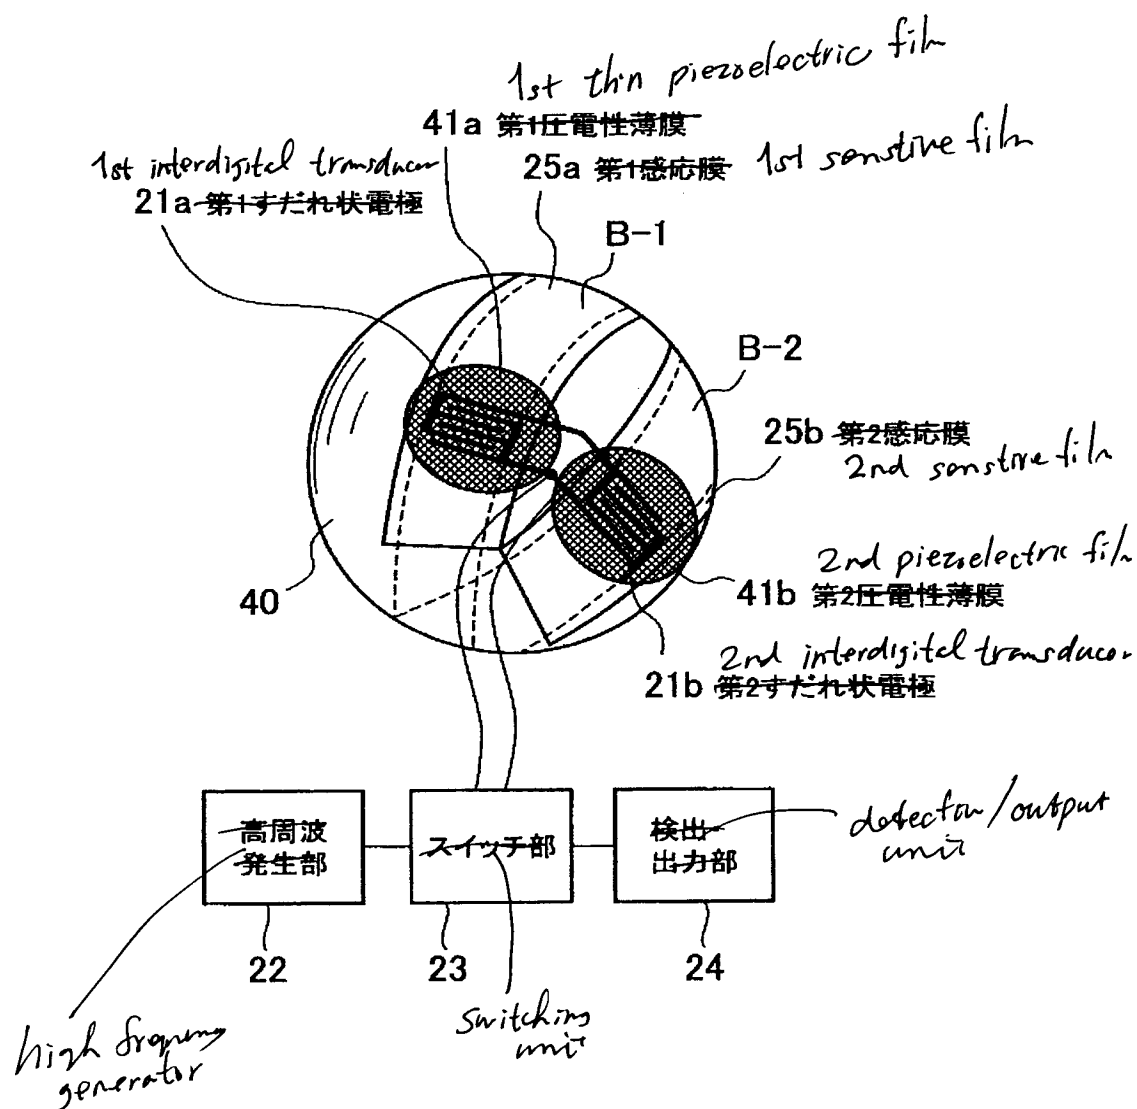 1st thin piezoelectric film
41a 第1圧電性薄膜
1st interdigital transducer
25a 第1感応膜 1st senstive film
21a 第1すだれ状電極
B-1
B-2
25b 第2感応膜
2nd senstive film
2nd piezoelectric film
40
41b 第2圧電性薄膜
2nd interdigital transducer
21b 第2すだれ状電極
高周波
発生部
スイッチ部
検出
出力部
detecton/output
unit
22
23
24
high frequency
generator
switching
unit